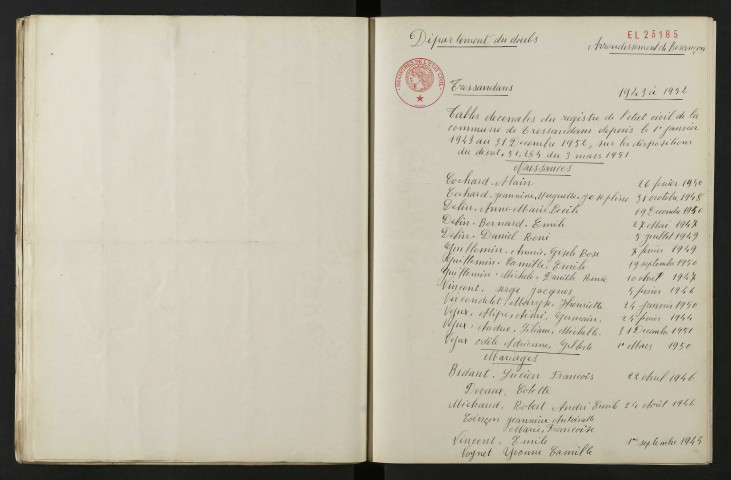 Département du doubs
EL 25185
Arrondissement de Besançon
REGISTRES DE L'ETAT CIVIL
Tressandans
1943 à 1952
Tables decenales du registre de l'etat civil de la
commune de Tressandans depuis le 1er janvier
1943 au 31 Decembre 1952, sur les dispositions
du decret, 51.284 du 3 mars 1951
Naissances
Cochard. Alain 26 fevrier 1950
Cochard. Jeannine, Huguette, Josephine 31 octobre 1948
Delin. Anne-Marie Cecile 19 Decembre 1950
Delin. Bernard. Emile 27 Mai 1947
Delin. Daniel René 5 juillet 1949
Guillemin. Annie. Gisèle Rose 7 fevrier 1949
Guillemin. Camille. Emile 19 septembre 1950
Guillemin. Michèle. Danièle Renée 10 Août 1947
Vincent. serge Jacques 5 fevrier 1946
Maryse, Henriette 24 janvier 1950
Germain. 24 fevrier 1944
Liliane, Michelle 31 Decembre 1951
odile Adrienne, Gilberte 1er Mars 1950
Mariages
Bidant. Lucien Francois 22 Avril 1946
Devaux. Colette
Michaud. Robert André Emile 24 Août 1946
Jeannine Antoinette
Marie, Francoise
Vincent. Emile 1er septembre 1945
Voynet Yvonne Camille